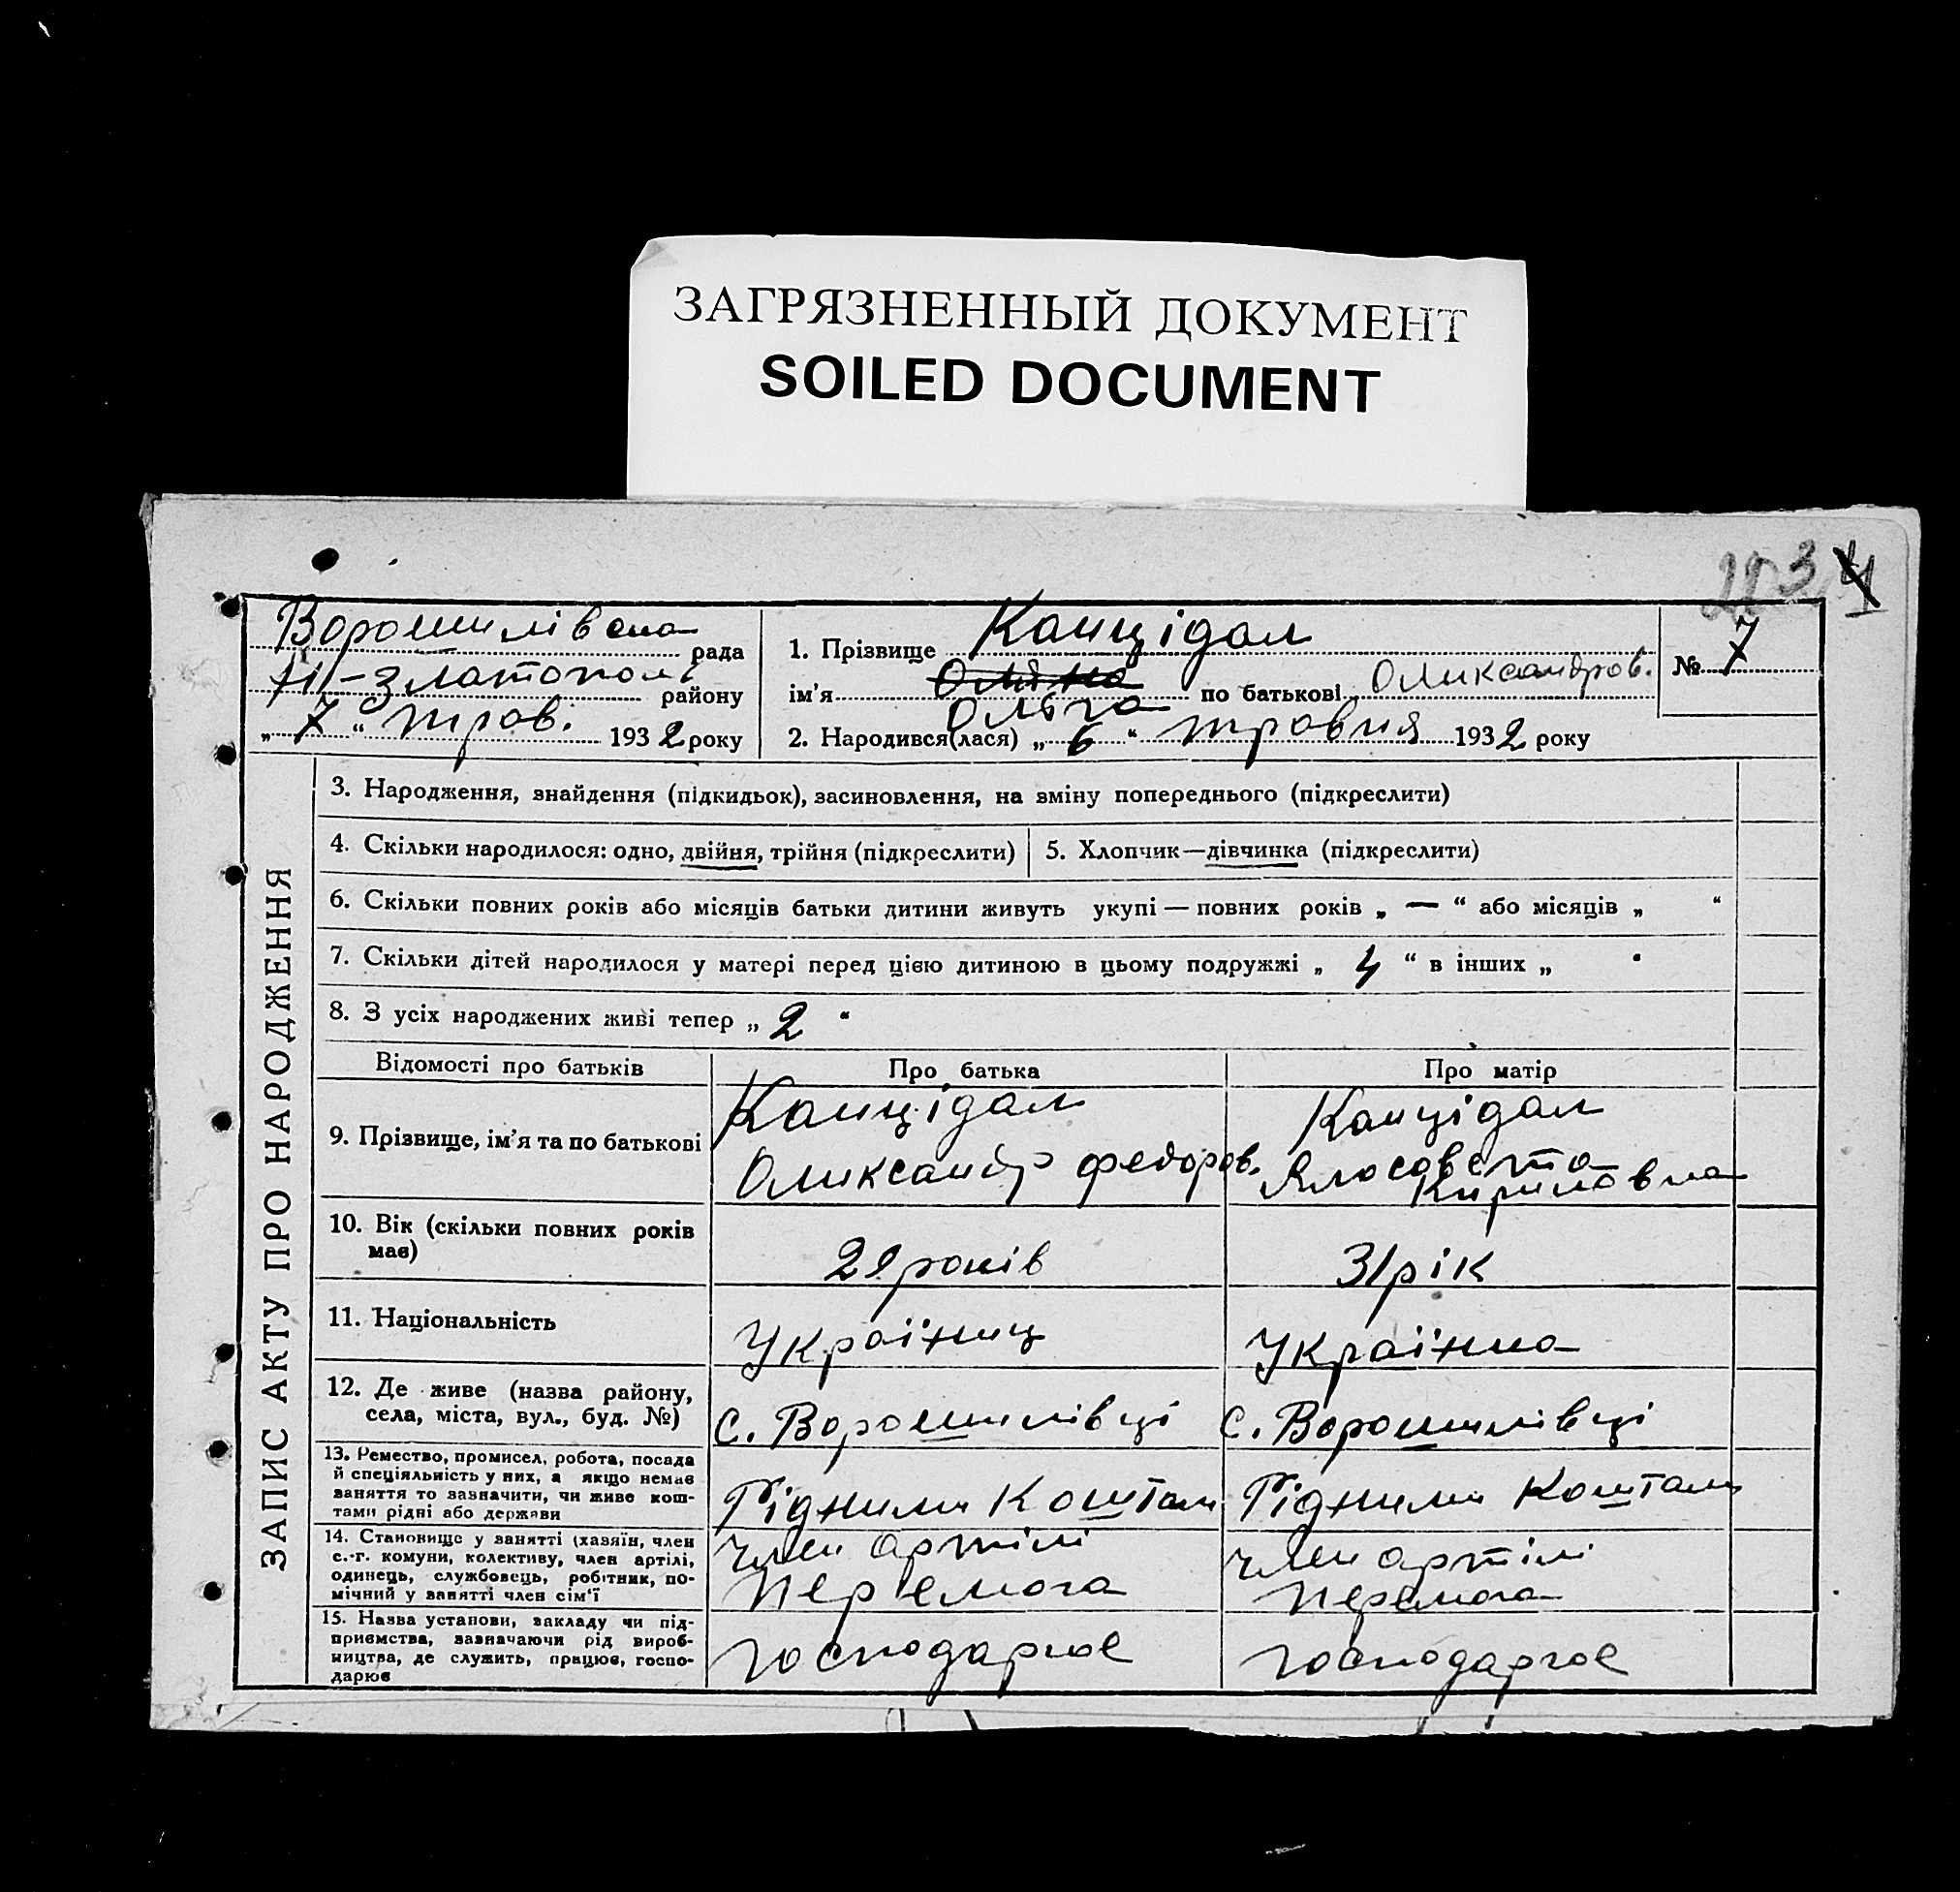 ЗАГРЯЗНЕННЫЙ ДОКУМЕНТ
SOILED DOCUMENT
Ворошилівска рада
Н-Златопол району
„ 7 “ трав. 1932 року
1. Прізвище Канцідал
ім’я Оляна Ольга по батькові Оликсандров.
№ 7
2. Народився(лася) „ 6 “ травня 1932 року
ЗАПИС АКТУ ПРО НАРОДЖЕННЯ
3. Народження, знайдення (підкидьок), засиновлення, на зміну попереднього (підкреслити)
4. Скільки народилося: одно, двійня, трійня (підкреслити)
5. Хлопчик—дівчинка (підкреслити)
6. Скільки повних років або місяців батьки дитини живуть укупі — повних років „ — “ або місяців „ “
7. Скільки дітей народилося у матері перед цією дитиною в цьому подружжі „ 4 “ в інших „ “
8. З усіх народжених живі тепер „ 2 “
Відомості про батьків Про батька Про матір
9. Прізвище, ім’я та по батькові
Канцідал
Оликсандр Федоров.
Канцідал
Ялосавета
Кириловна
10. Вік (скільки повних років
має)
29 років
31 рік
11. Національність
Україниц
Українка
12. Де живе (назва району,
села, міста, вул., буд. №)
с. Ворошилівці
с. Ворошилівці
13. Ремество, промисел, робота, посада
й спеціяльність у них, а якщо немає
заняття то зазначити, чи живе кош-
тами рідні або держави
Рідними коштами
Рідними коштами
14. Становище у занятті (хазяїн, член
с.-г. комуни, колективу, член артілі,
одинець, службовець, робітник, по-
мічний у занятті член сім’ї
член артілі
Перемога
член артілі
Перемога
15. Назва установи, закладу чи під-
приємства, зазначаючи рід вироб-
ництва, де служить, працює, госпо-
дарює
господарює
господарює